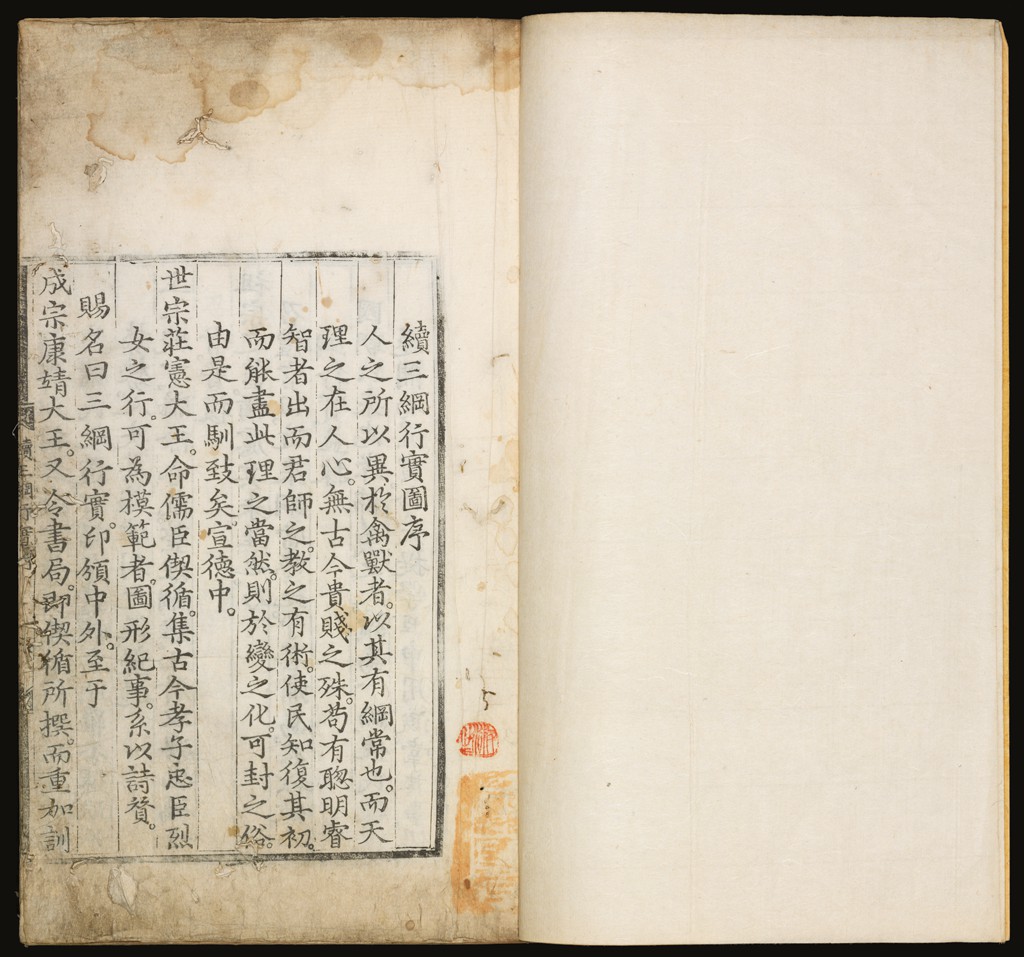 續三綱行實圖序
人之所以異於禽獸者。以其有綱常也。而天
理之在人心。無古今貴賤之殊。苟有聰明睿
智者出而君師之。教之有術。使民知復其初。
而能盡此理之當然。則於變之化。可封之俗。
由是而馴致矣。宣德中。
世宗莊憲大王。命儒臣偰循。集古今孝子忠臣烈
女之行。可為模範者。圖形紀事。系以詩贊。
賜名曰三綱行實。印頒中外。至于
成宗康靖大王。又令書局。即偰循所撰。而重加訓